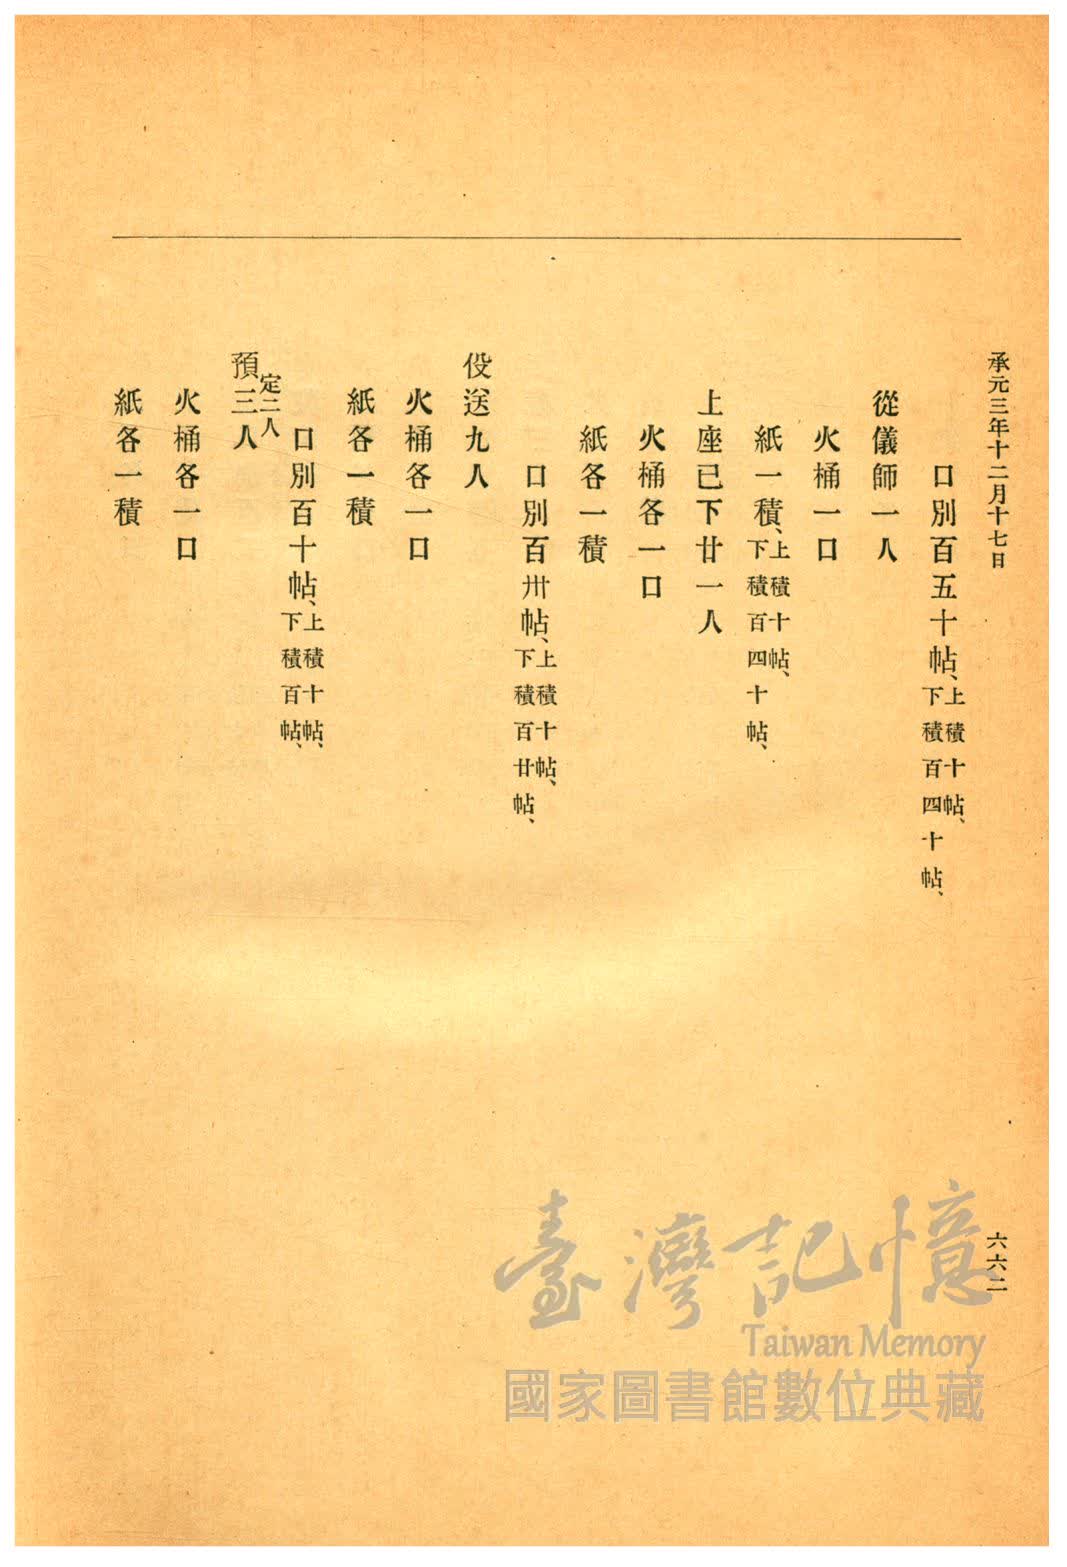 承元三年十二月十七日
口別百五十帖、上積十帖、下積百四十帖、
從儀師一人
火桶一口
紙一積、上積十帖、下積百四十帖、
上座已下廿一人
火桶各一口
紙各一積
口別百卅帖、上積十帖、下積百廿帖、
伇送九人
火桶各一口
紙各一積
口別百十帖、上積十帖、下積百帖、
定二人
預三人
火桶各一口
紙各一積
六六二
臺灣記憶
Taiwan Memory
國家圖書館數位典藏